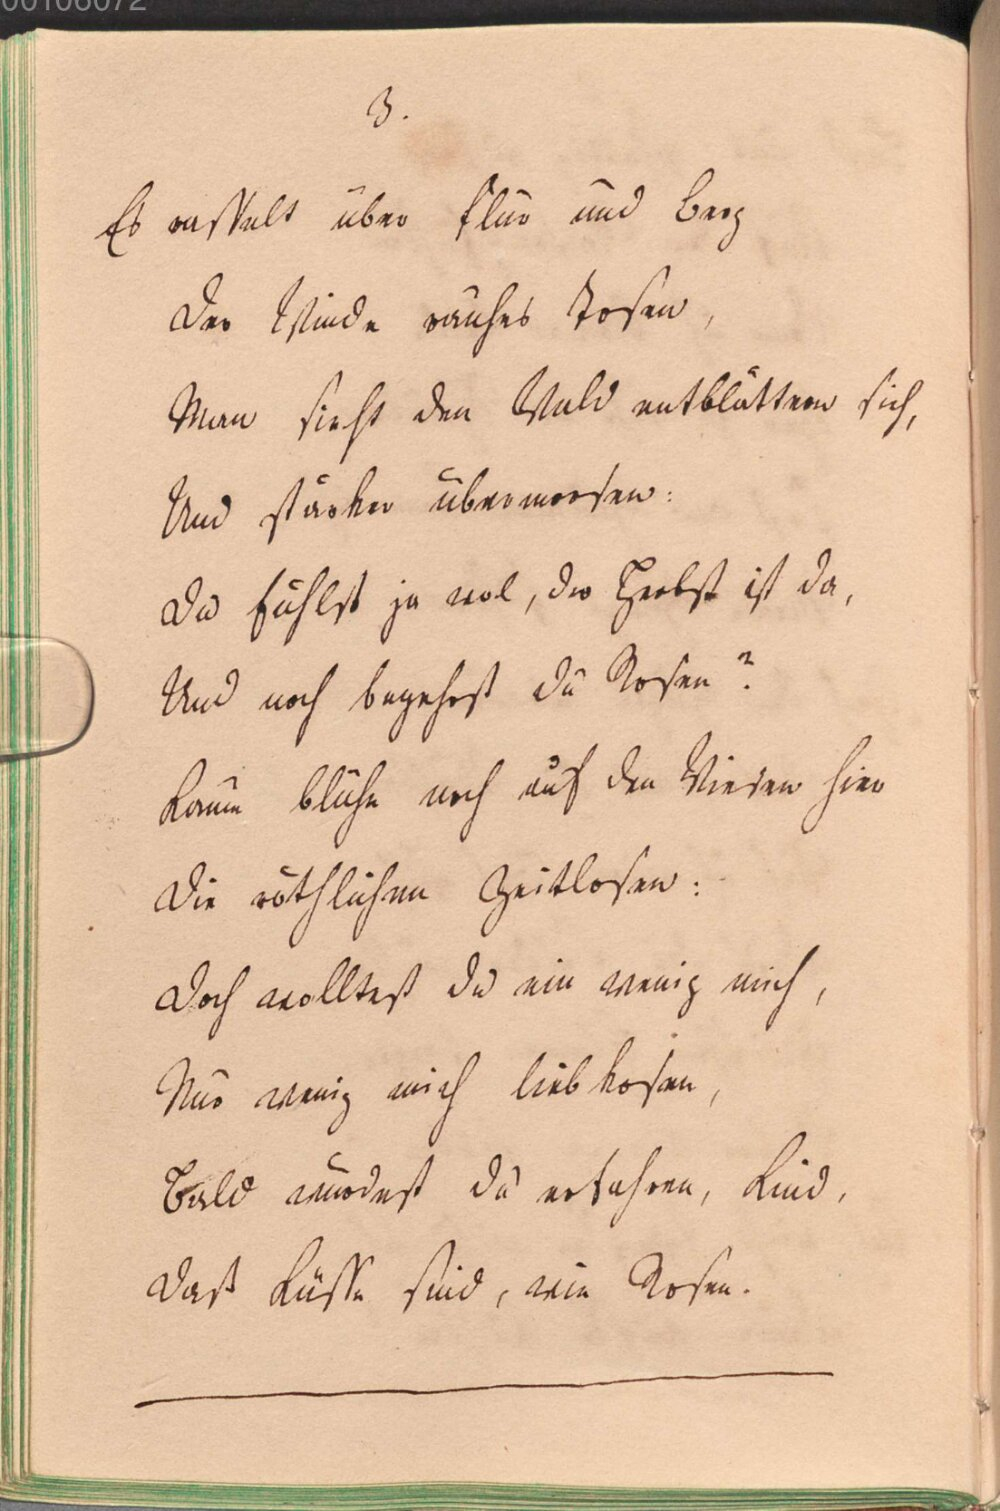 00106072
3.
Es rasselt über Flur und Berg
Der Winde rauhes Tosen,
Man sieht den Wald entblättern sich,
Und stärker übermoosen:
Du fühlst ja wol, der Herbst ist da,
Und noch begehrst du Rosen?
Kaum blühn noch auf den Wiesen hier
Die röthlichen Zeitlosen:
Doch wolltest du ein wenig mich,
Nur wenig mich liebkosen,
Bald würdest du erfahren, Kind,
Daß Küsse sind, wie Rosen.